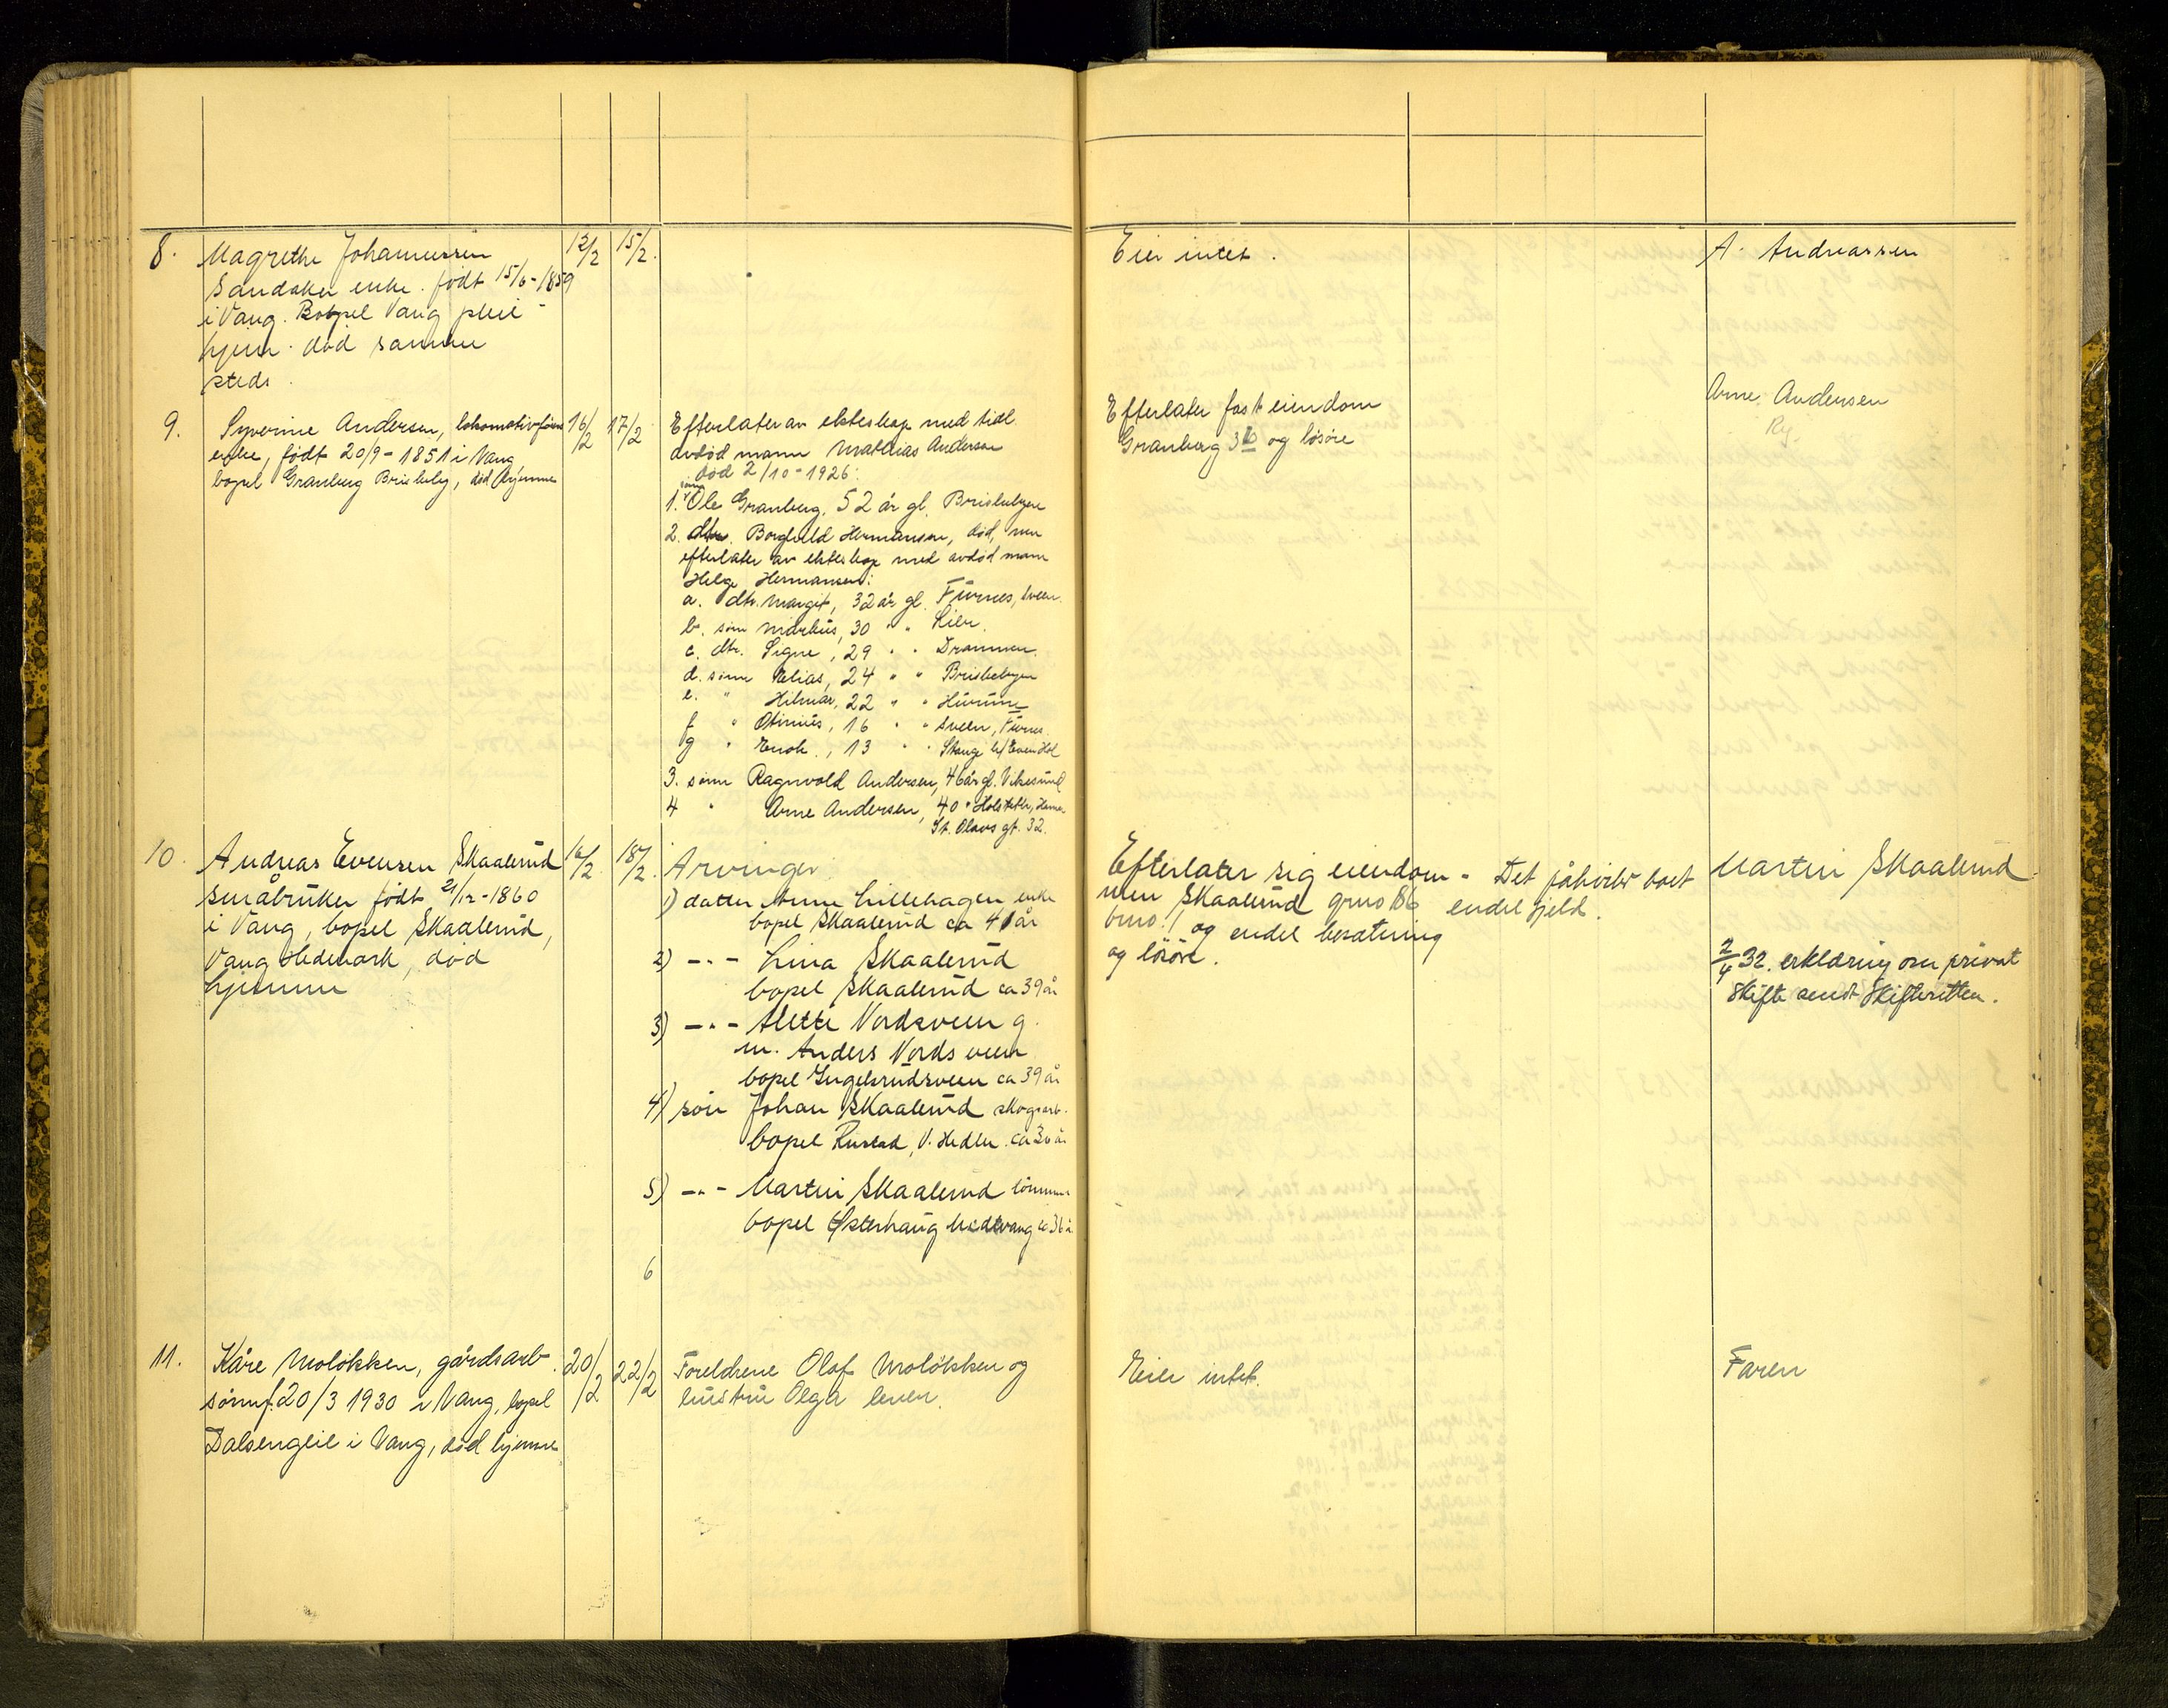 8. Magrethe Johannessen 12/2 15/2. Eier intet. A. Andreassen
Sandaker enke. født 15/6-1859
i Vang. Bopel Vang pleie-
hjem. død samme
steds.
9. Syverine Andersen, lokomotivfører 16/2 17/2
enke, født 20/9-1851 i Vang
bopel Granberg Briskeby, død hjemme
Efterlater av ekteskap med tidl.
avdød mann Mathias Andersen
død 2/10-1926:
1. sønn Ole Granberg, 52 år gl. Briskebyen
2. dtr. Borghild Hermansen, død, men
efterlater av ekteskap med avdød mann
Helge Hermansen:
a. dtr. Margit, 32 år gl. Furnes, Sveen.
b. sønn Markus, 30 " " Lier.
c. dtr. Signe, 29 " " Drammen.
d. sønn Elias, 24 " " Briskebyen
e. " Hilmar, 22 " " Hurum
f " Otinius, 16 " " Sveen, Furnes.
g " Enok., 13 " " Stange h/ Even Hol
3. sønn Ragnvold Andersen, 46 år gl. Vikesund
4 " Arne Andersen, 40 " Holsteth, Hamar
St. Olavs gt. 32.
Efterlater fast eiendom
Granberg og løsøre
Arne Andersen
10. Andreas Evensen Skaalerud 16/2 18/2.
småbruker født 21/12-1860
i Vang, bopel Skaalerud,
Vang Hedmark, død
hjemme
Arvinger
1) datter Anne Lillehagen enke
bopel Skaalerud ca 41 år
2) -"- Lina Skaalerud
bopel Skaalerud ca 39 år
3) -"- Alette Nordsveen g.
m. Anders Nordsveen
bopel Ingelsrudsveen ca 39 år
4) søn Johan Skaalerud skogsarb.
bopel Rustad, V. Hedm. ca 36 år
5) -"- Martin Skaalerud
bopel Østerhaug Nedrevang ca 36 år
6
Efterlater sig eiendom-
men Skaalerud grno 186
brno. 1 og endel besætning
og løsøre.
Det påhviler boet
endel gjeld.
Martin Skaalerud
2/4 32. erklæring om privat
skifte sendt Skifteretten.
11. Kåre Moløkken, gårdsarb. 20/2 22/2
sønn f. 20/3 1930 i Vang, bopel
Dalsengeie i Vang, død hjemme
Foreldrene Olaf Moløkken og
hustru Olga lever.
Eier intet.
Faren